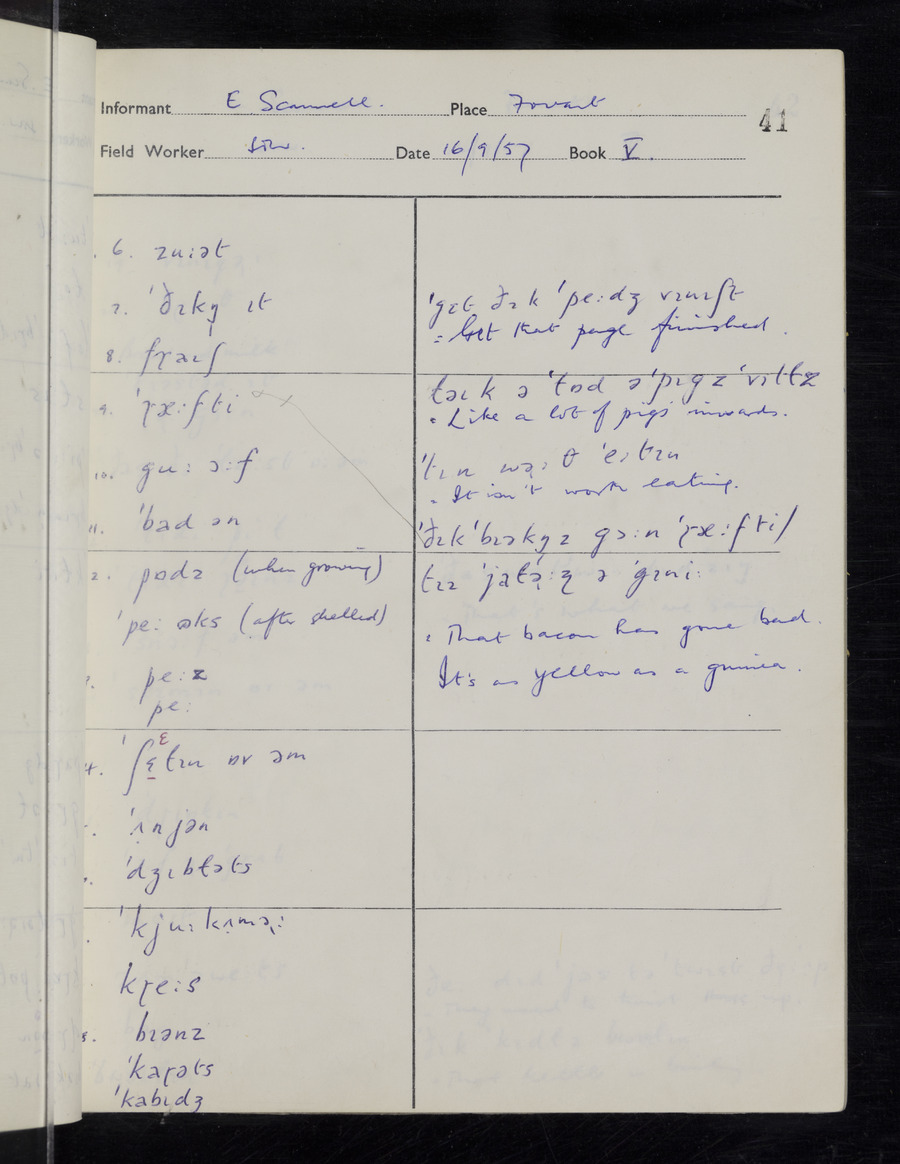 Informant E Scammell. Place Fovant
41
Field Worker Date 16/9/57 Book V.
6. zuːət
7. ˈðɪkɪ ɪt
8. fɽaɪʃ
9. ˈɽæːfti
10. guː ɔːf
11. ˈbad ən
2. pɒdz (when growing)
ˈpeː ɒks (after shelled)
peːz
peː
ˈʃɛtɪn ɒv əm
ˈʌnjən
ˈdʒɪbɫəts
ˈkjuːkʌməɻː
kɽeːs
bɪənz
ˈkaɽəts
ˈkabɪdʒ
ˈgɛt ðɪk ˈpeːdʒ vɪnɪʃt
: Get that page finished.
ɫəɪk ə ˈɫɒd əˈpɪgz ˈvɪtɫz
: Like a lot of pigs' inwards.
ˈtɪn wəɻːθ ˈeːtɪn
: It isn't worth eating.
ˈðɪk ˈbɪəkɪz gɔːn ˈɽæːfti/
tɪz ˈjaɫəɻːz ə ˈgɪniː
: That bacon has gone bad.
It's as yellow as a guinea.